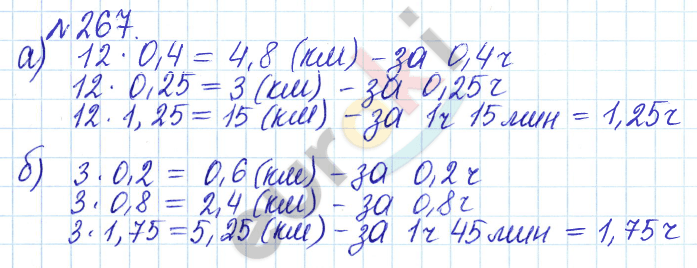 №267.
а) 12 · 0,4 = 4,8 (км) – за 0,4 ч
12 · 0,25 = 3 (км) – за 0,25 ч
12 · 1,25 = 15 (км) – за 1ч 15 мин = 1,25 ч
б) 3 · 0,2 = 0,6 (км) – за 0,2 ч
3 · 0,8 = 2,4 (км) – за 0,8 ч
3 · 1,75 = 5,25 (км) – за 1ч 45 мин = 1,75 ч
euroki